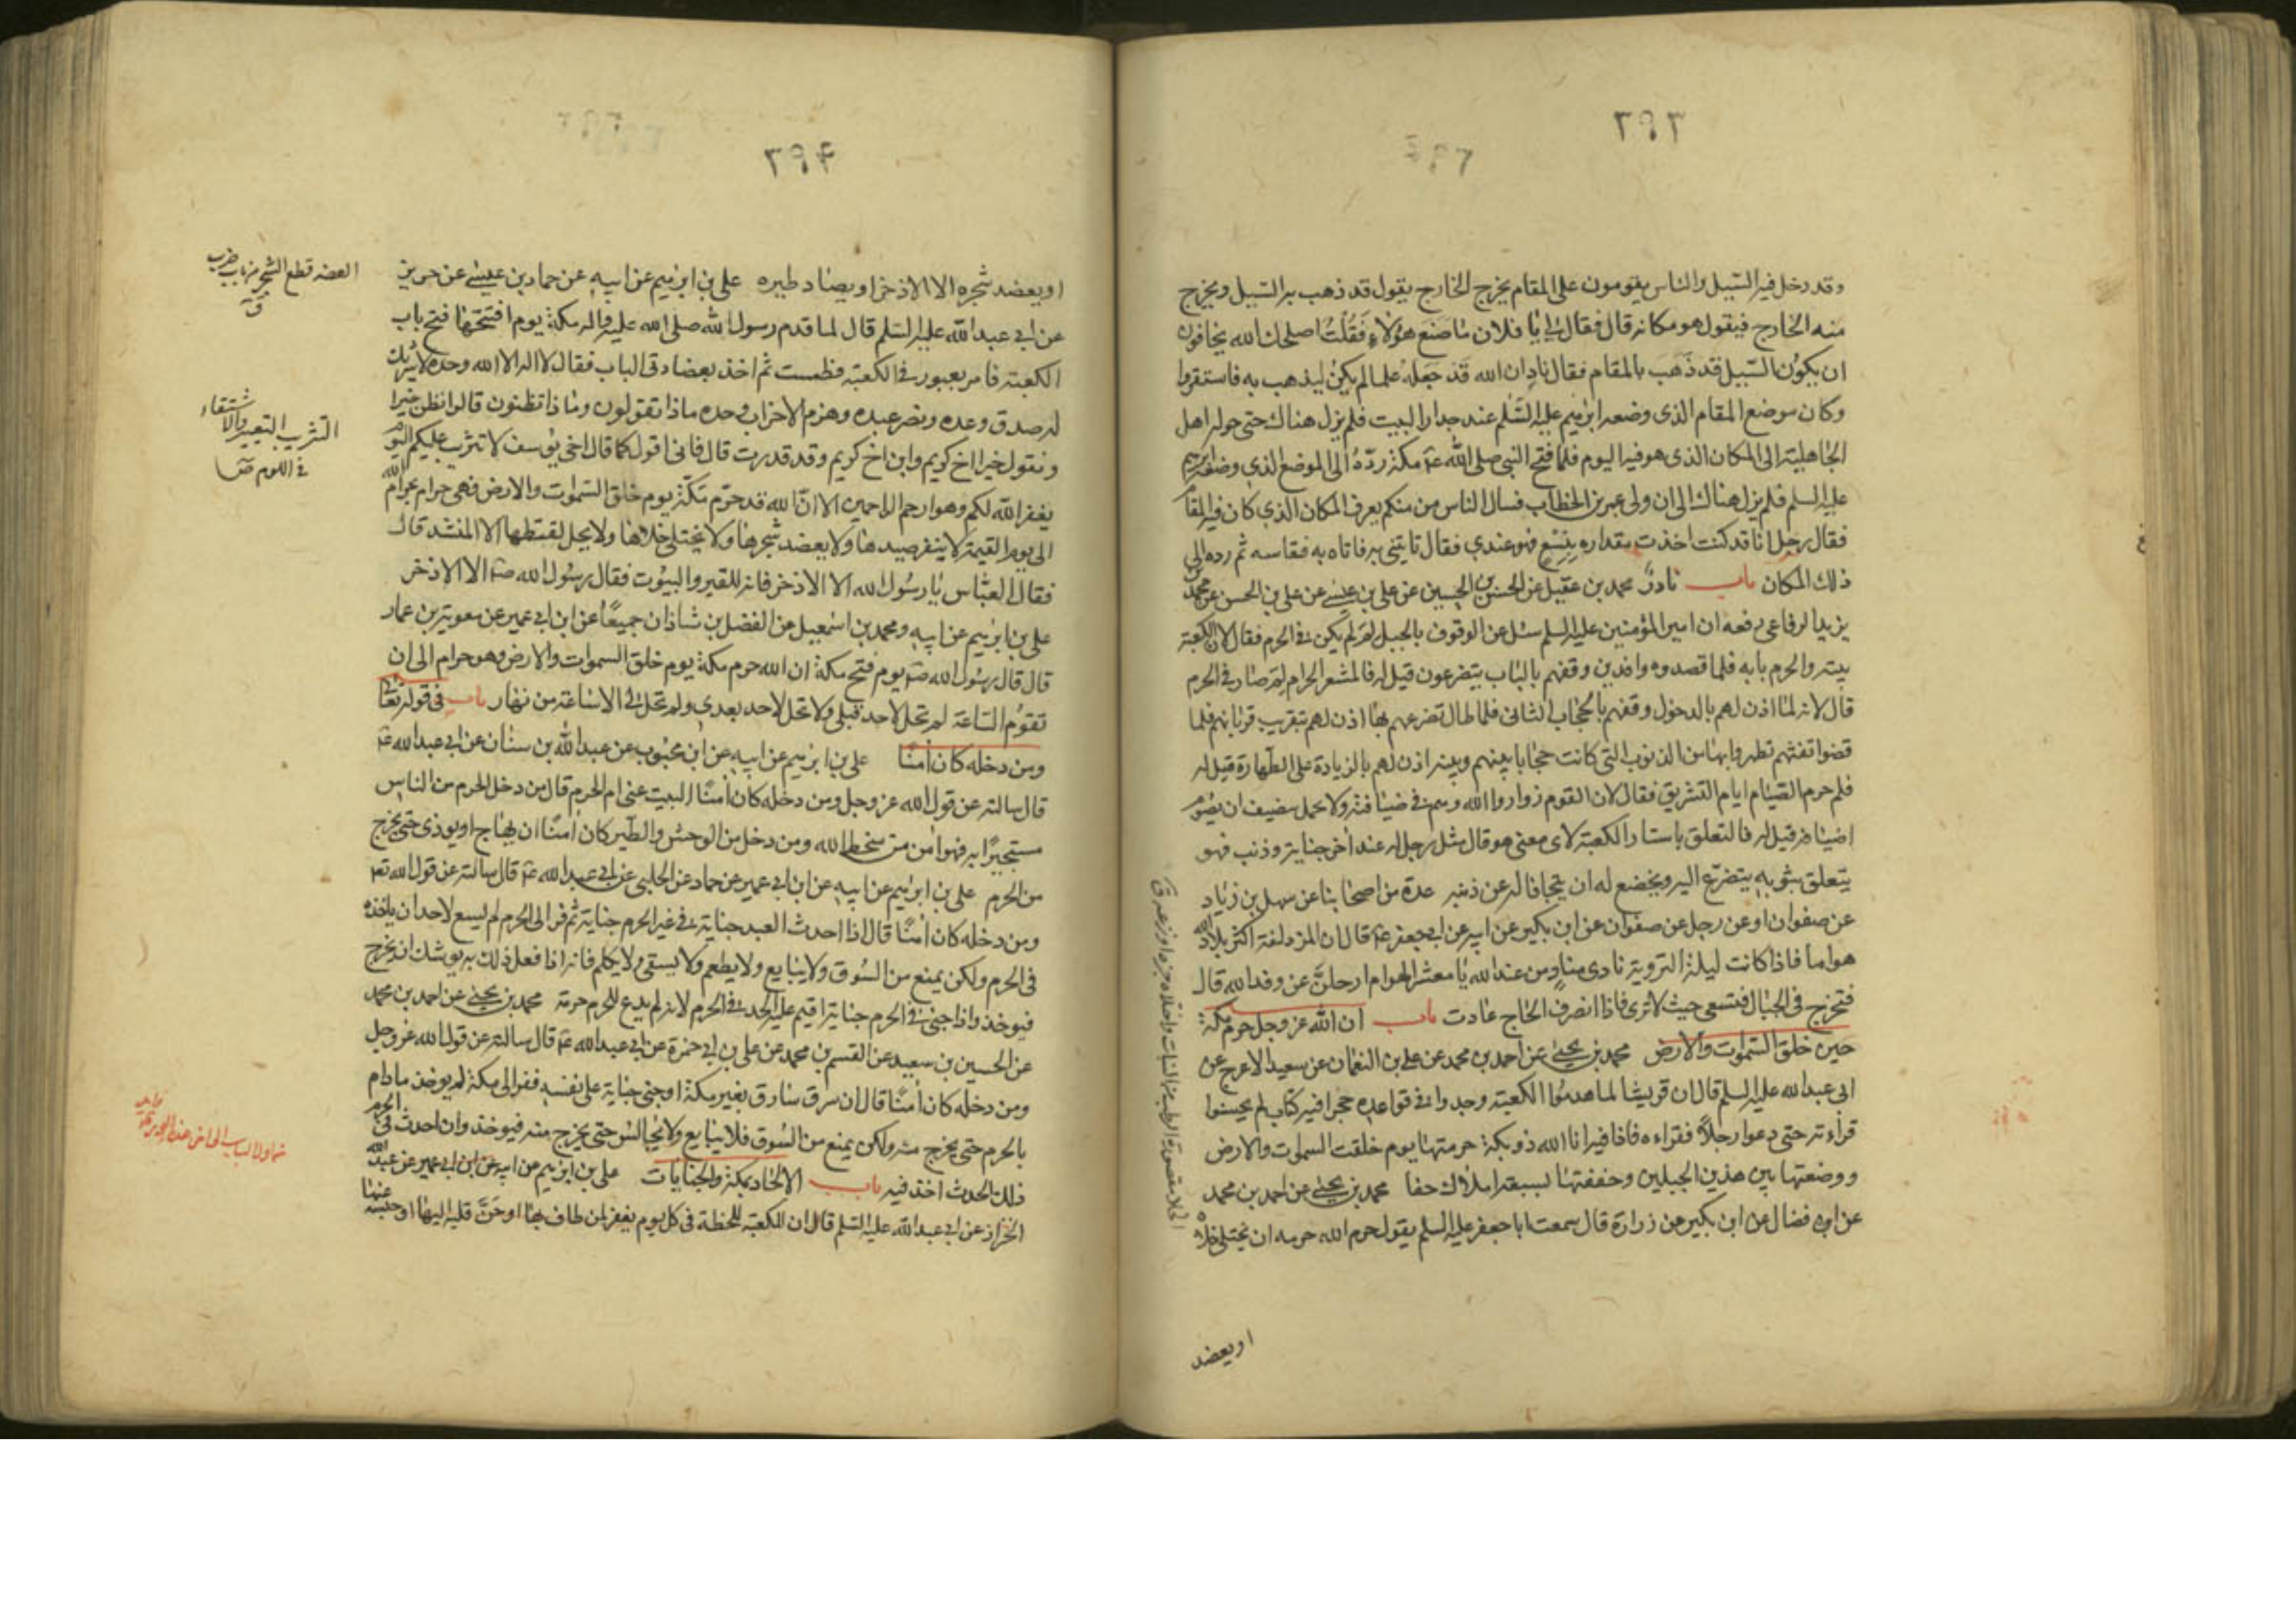 ٢٩٣
وقد دخل فيه السّيل والناس يقومون على المقام يخرج الخارج يقول قد ذهب به السّيل ويخرج
منه الخارج فيقول هو مكانه قال فقال لي يا فلان ما صنع هؤلاء فَقُلْتُ اصلحك الله يخافون
ان يكون السّيل قد ذَهَبَ بالمقام فقال نادِ ان الله قَد جَعَلَهُ علما لم يكن ليذهب به فاستقروا
وكان موضع المقام الذي وضعه ابرٰهيم عليه السَّلم عند جدار البيت فلم يزل هناك حتى حوله اهل
الجاهلية الى المكان الذي هو فيه اليوم فلما فتح النبي صلى الله عليه مكة ردّهُ الى الموضع الذي وضعه ابرٰهيم
عليه السلم فلم يزل هناك الى ان ولى عمر بن الخطاب فسال الناس من منكم يعرف المكان الذي كان فيه المقام
فقال رجل انا قد كنت اخذت مقداره بِنِسْعٍ فهو عندي فقال تاتيني به فاتاه به فقاسه ثم رده الى
ذلك المكان باب نادرٌ محمد بن عقيل عن الحسن بن الحسين عن علي بن عيسى عن علي بن الحسن عن محمد بن
يزيد الرفاعي رفعه ان امير المؤمنين عليه السلم سئل عن الوقوف بالجبل لِمَ لم يكن في الحرم فقال لان الكعبة
بيته والحرم بابه فلما قصدوه وافدين وقفهم بالباب يتضرعون قيل له فالمشعر الحرام لِمَ صار في الحرم
قال لانه لما اذن لهم بالدخول وقفهم بالحجاب الثاني فلما طال تضرعهم بها اذن لهم بتقريب قربانهم فلما
قضوا تفثهم تطهروا بها من الذنوب التي كانت حجابا بينهم وبينه اذن لهم بالزيادة على الطّهارة قيل له
فلم حرم الصّيام ايام التشريق فقال لان القوم زوار والله وهم في ضيافته ولا يجمل بمضيف ان يصوم
اضيافه قيل له فالتعلق باستار الكعبة لاي معنى هو قال مثل رجل له عند آخر جناية وذنب فهو
يتعلق بثوبه يتضرّع اليه ويخضع له ان يتجافا له عن ذنبه عدة من اصحابنا عن سهل بن زياد
عن صفوان او عن رجل عن صفوان عن ابن بكير عن ابيه عن ابي جعفر عه قال ان المزدلفة اكثر بلاد الله
هواما فاذا كانت ليلة التروية نادى منادٍ من عند الله يا معشر الهوام ارحلنّ عن وفد الله قال
فتخرج في الجبال فتسعى حيث لا ترى فاذا انصرف الحاج عادت باب ان الله عز وجل حرم مكة
حين خلق السّموات والارض محمد بن يحيى عن احمد بن محمد عن علي بن النعمان عن سعيد الاعرج عن
ابي عبد الله عليه السلم قال ان قريشا لما هدموا الكعبة وجدوا في قواعده حجرا فيه كتاب لم يحسنوا
قراءته حتى دعوا رجلاً فقراءه فاذا فيه انا الله ذو بكة حرمتها يوم خلقت السموات والارض
ووضعتها بين هذين الجبلين وحففتها بسبعة املاك حفا محمد بن يحيى عن احمد بن محمد
عن ابن فضال عن ابن بكير عن زرارة قال سمعت ابا جعفر عليه السلم يقول حرم الله حرمه ان يختلى خلاه
او يعضد
٢٩٤
او يعضد شجره الا الاذخر او يصاد طيره علي بن ابرٰهيم عن ابيه عن حماد بن عيسى عن حريز
عن ابي عبد الله عليه السّلم قال لما قدم رسول الله صلى الله عليه واله مكة يوم افتتحها فتح باب
الكعبة فامر بصور في الكعبة فطمست ثم اخذ بعضادتي الباب فقال لا اله الا الله وحده لا شريك
له صدق وعده ونصر عبده وهزم الاحزاب وحده ماذا تقولون وماذا تظنون قالوا نظن خيرا
ونقول خيرا اخ كريم وابن اخ كريم وقد قدرت قال فاني اقول كما قال اخي يوسف لا تثريب عليكم اليوم
يغفر الله لكم وهو ارحم الراحمين الا انّ الله قد حرّم مكّة يوم خلق السّموات والارض فهي حرام بحرام الله
الى يوم القيمة لا ينفر صيدها ولا يعضد شجرها ولا يختلى خلاها ولا يحل لقطتها الا لمنشد قال
فقال العبّاس يا رسول الله الا الاذخر فانه للقبر والبيوت فقال رسول الله صه الا الاذخر
علي بن ابرٰهيم عن ابيه ومحمد بن اسمعيل عن الفضل بن شاذان جميعًا عن ابن ابي عمير عن معوية بن عمار
قال قال رسول الله صه يوم فتح مكة ان الله حرم مكة يوم خلق السموات والارض وهو حرام الى ان
تقوم السّاعة لم تحل لاحد قبلي ولا تحل لاحد بعدي ولم تحل لي الا ساعة من نهار باب في قوله تعالى
ومن دخله كان اٰمنًا علي بن ابرٰهيم عن ابيه عن ابن محبوب عن عبد الله بن سنان عن ابي عبد الله عه
قال سالته عن قول الله عز وجل ومن دخله كان اٰمنًا البيت عنى ام الحرم قال من دخل الحرم من الناس
مستجيرًا به فهو اٰمن من سخط الله ومن دخل من الوحش والطّير كان اٰمنًا ان يهاج او يوذى حتى يخرج
من الحرم علي بن ابرٰهيم عن ابيه عن ابن ابي عمير عن حماد عن الحلبي عن ابي عبد الله عه قال سالته عن قول الله تعه
ومن دخله كان اٰمنًا قال اذا احدث العبد جناية في غير الحرم جناية ثم فر الى الحرم لم يسع لاحد ان ياخذه
في الحرم ولكن يمنع من السّوق ولا يبايع ولا يطعم ولا يسقى ولا يكلم فانه اذا فعل ذلك به يوشك ان يخرج
فيوخذ واذا جنى في الحرم جناية اقيم عليه الحد في الحرم لانه لم يدع للحرم حرمة محمد بن يحيى عن احمد بن محمد
عن الحسين بن سعيد عن القسم بن محمد عن علي بن ابي حمزة عن ابي عبد الله عه قال سالته عن قول الله عز وجل
ومن دخله كان اٰمنًا قال ان سرق سارق بغير مكة او جنى جناية على نفسه ففر الى مكة لم يوخذ مادام
بالحرم حتى يخرج منه ولكن يمنع من السّوق فلا يبايع ولا يجالس حتى يخرج منه فيوخذ وان احدث في الحرم
ذلك الحدث اخذ فيه باب الالحاد بمكة والجنايات علي بن ابرٰهيم عن ابيه عن ابن ابي عمير عن عبد الله
الخزاز عن ابي عبد الله عليه السّلم قال ان للكعبة للحظة في كل يوم يغفر لمن طاف بها او حَنَّ قلبه اليها او حبسه عنها
العضد قطع الشجر من باب ضرب
ق
التثريب التعيير والاستقصاء
في اللوم